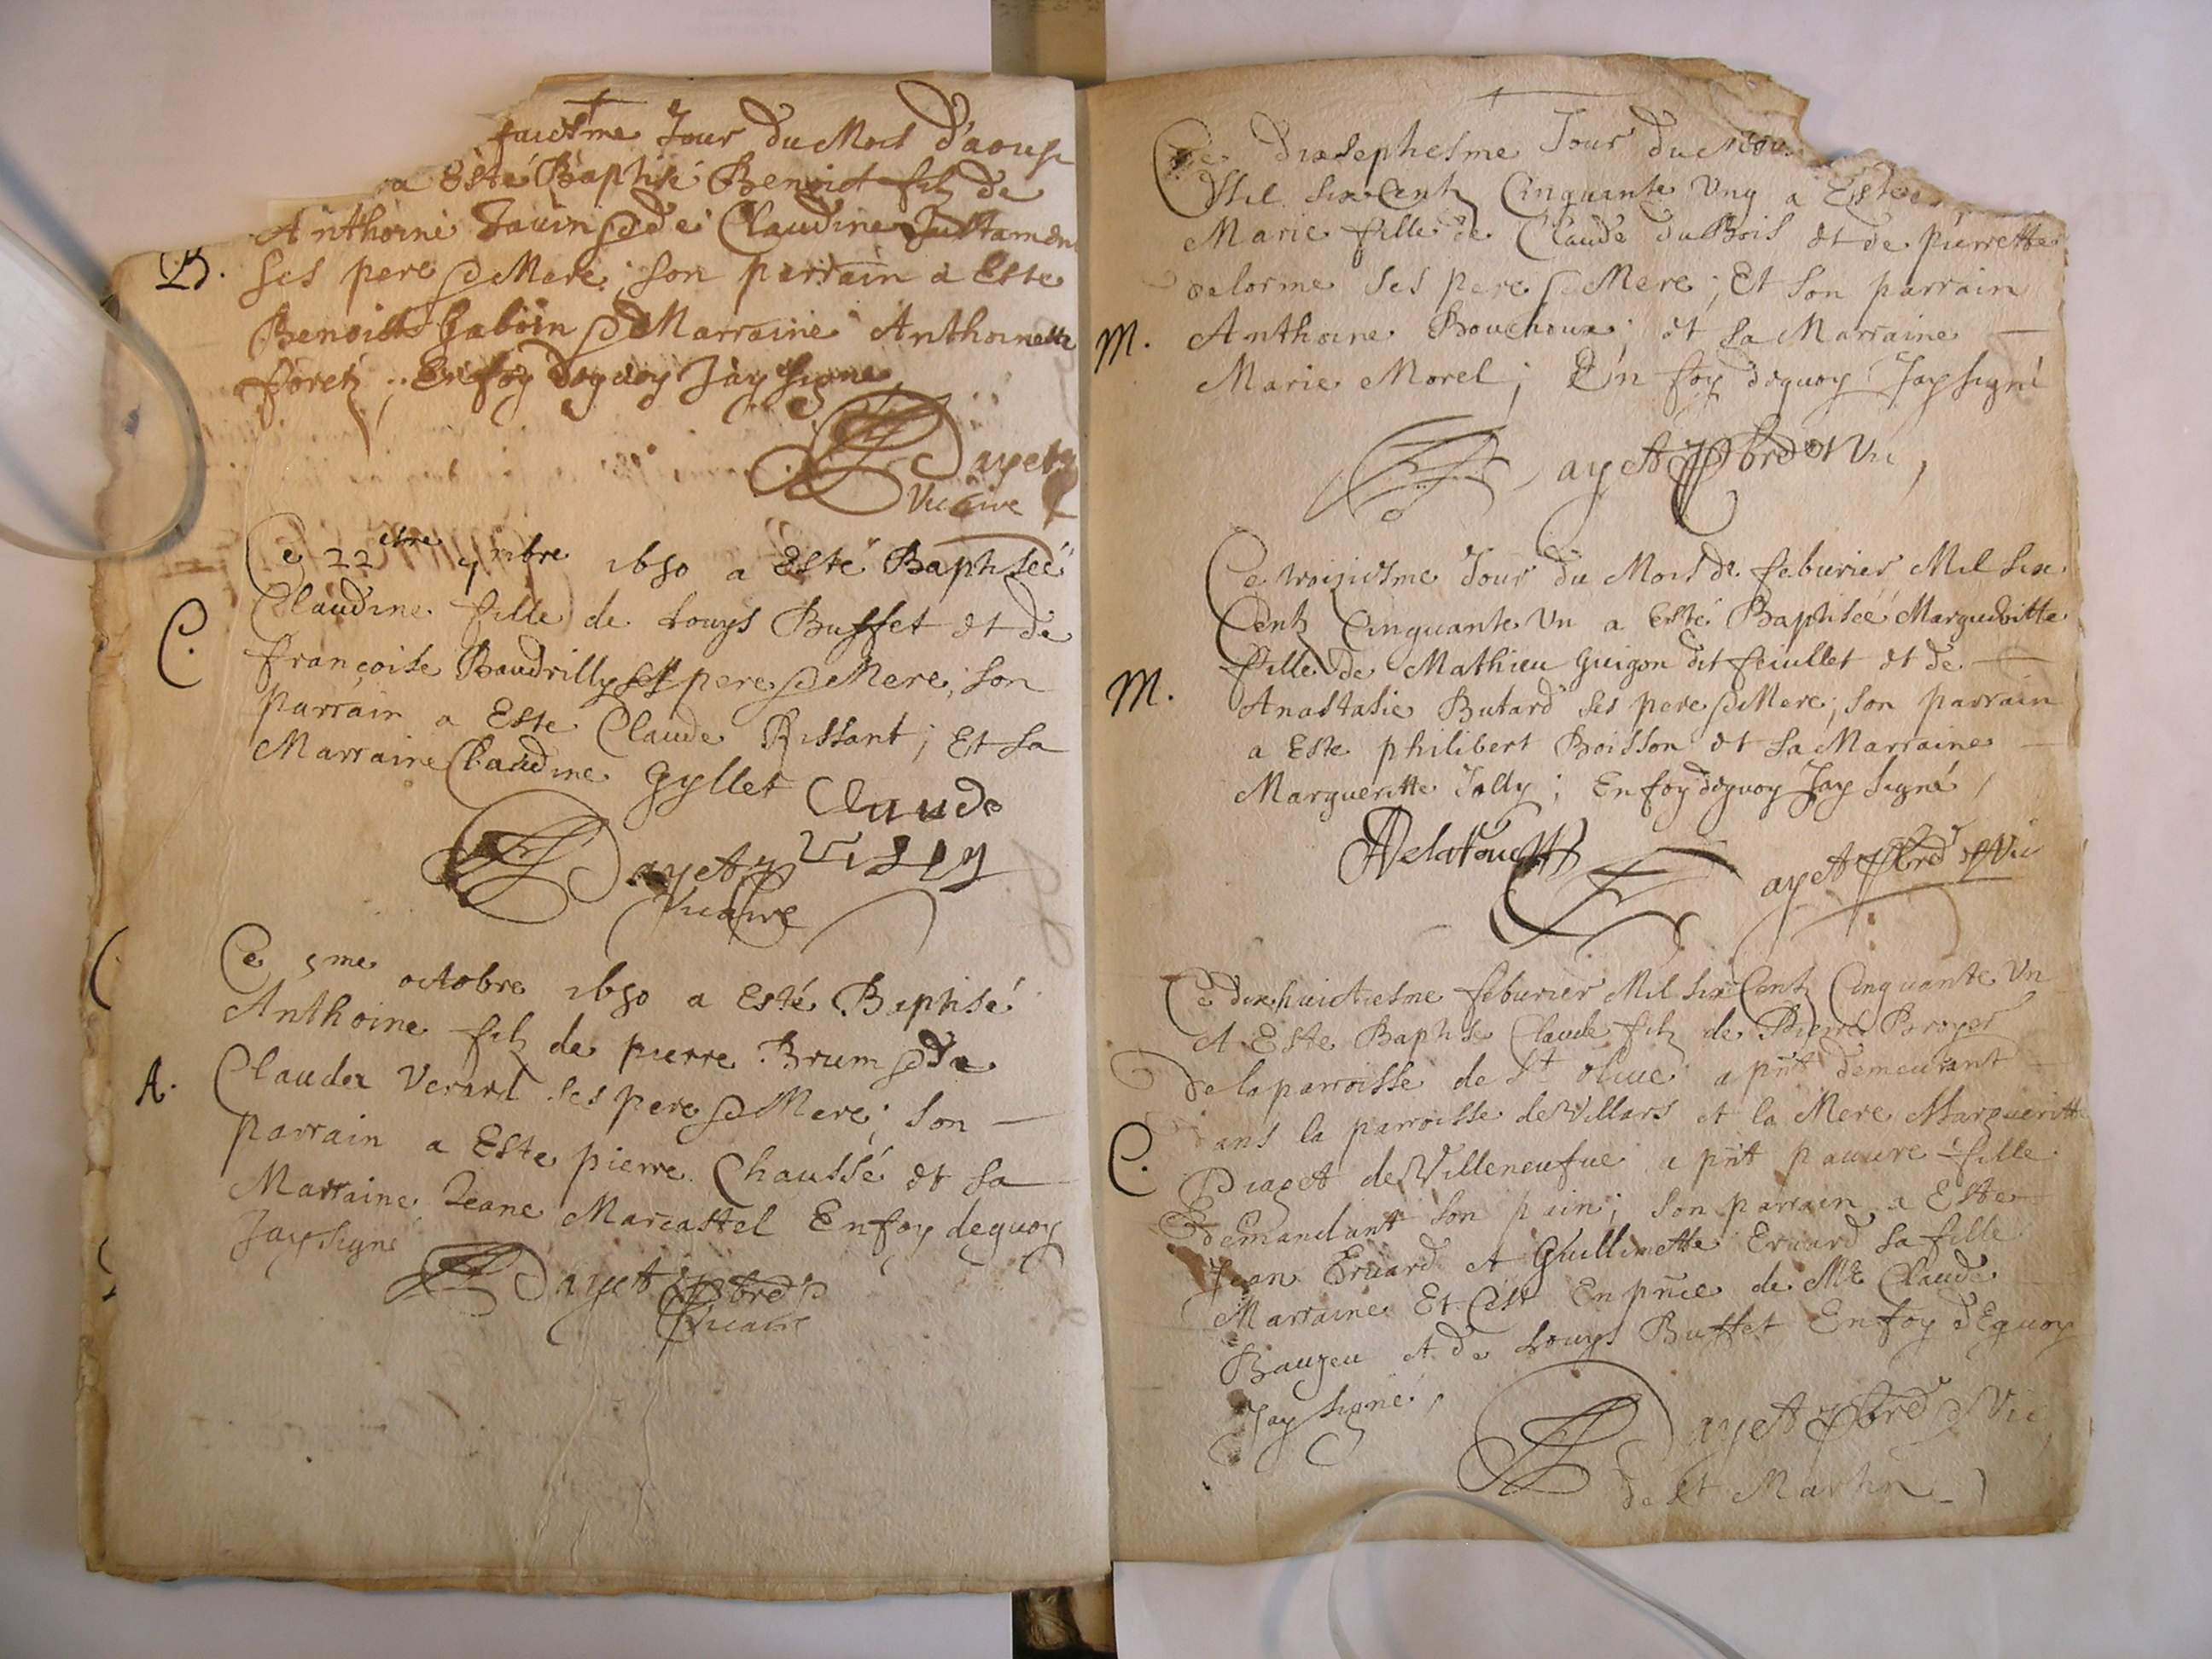 Jour du Mois d'aoust
a Esté Baptisé Benoict filz de
Anthoine Jauin & de Claudine
B.
ses pere & Mere; son parrain a Este
Benoist Gaboin & Marraine Anthoinette
foretz; En foy dequoy Jay signé
Dayet
Vicaire
Ce 22 7mbre 1650 a Esté Baptisée
Claudine fille de Louys Buffet et de
C.
françoise Baudrilly ses pere & Mere; son
parrain a Este Claude Rissant; Et sa
Marraine Claudine Gyllet Claude
Dayet
Vicaire
Ce 5me octobre 1650 a Esté Baptisé
Anthoine filz de pierre Brum & de
A.
Claudea Verard ses pere & Mere; son
parrain a Este pierre Chaussé et sa
Marraine Jeane Marcastel En foy dequoy
Jay signé
Dayet pbre
Vicaire
Ce dixsephesme Jour du
Mil six Centz Cinquante Ung a Este
Marie fille de Claude duBois et de pierrette
delorme ses pere & Mere; Et son parrain
M.
Anthoine Bouchoux; et sa Marraine
Marie Morel; En foy dequoy Jay signé
Dayet pbre et Vic
Ce troiziesme Jour du Mois de feburier Mil six
Centz Cinquante Un a Esté Baptisée Margueritte
fille de Mathieu Guigon dit feuillet et de
M.
Anastasie Butard ses pere & Mere; son parrain
a Este philibert Boisson et sa Marraine
Margueritte Jolly; En foy dequoy Jay signé
Dayet pbre & Vic
Ce dixhuictiesme feburier Mil six Centz Cinquante Un
A Este Baptise Claude filz de Pierre Broyer
de la parroisse de St oliue a pnt demeurant
dans la parroisse de Villars et la Mere Margueritte
C.
Piaget de Villeneufue a pnt pauure fille
demandant son pain; son parrain a Este
Jean Eruard et Guillemette Eruard sa fille
Marraine Et Cest En pnce de Mr Claude
Baujeu et de Louys Buffet En foy dEquoy
Jay signé,
Dayet pbre & Vic
de st Martin